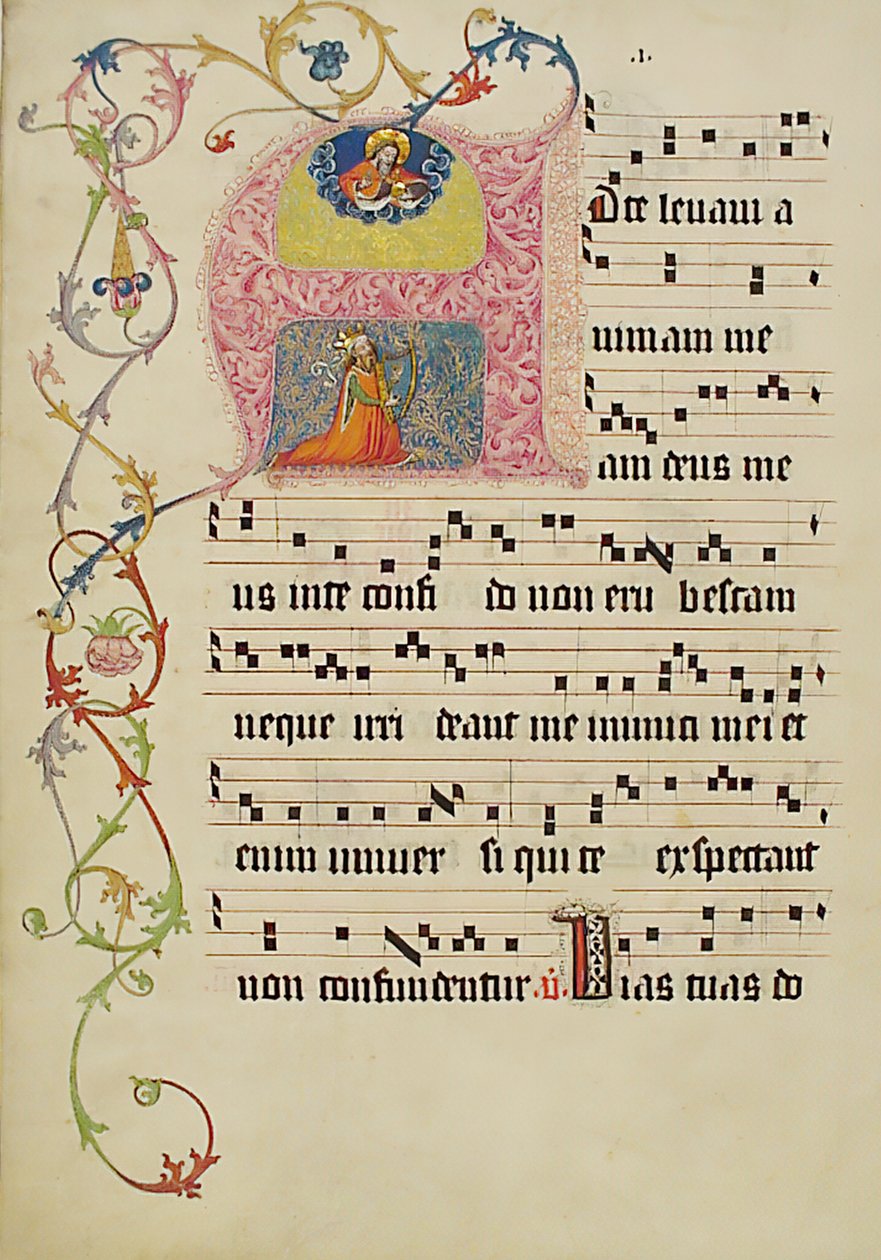 .1.
AD te levavi a
nimam me
am deus me
us in te confi do non eru bescam
neque irri deant me inimici mei et
enim univer si qui te exspectant
non confundentur .v. Vias tuas do